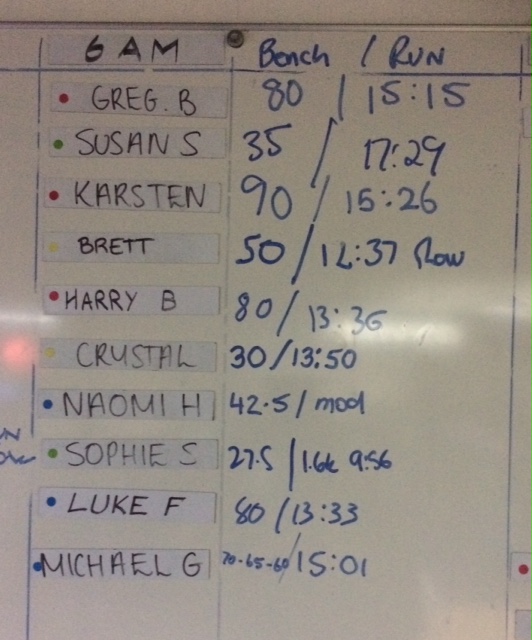 6 AM Bench / RUN
GREG. B 80 / 15:15
SUSAN S 35 / 17:29
KARSTEN 90 / 15:26
BRETT 50 / 12:37 Row
HARRY B 80 / 13:36
CRYSTAL 30 / 13:50
NAOMI H 42.5 / mod
SOPHIE S 27.5 / 1.6k 9:56
LUKE F 80 / 13:33
MICHAEL G 70-65-60 / 15:01